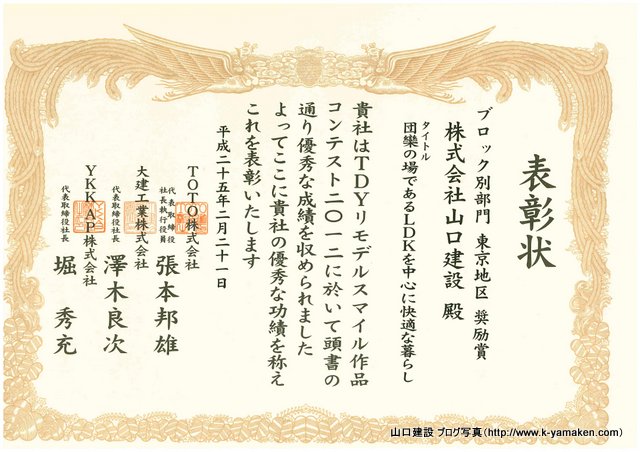 表彰状
ブロック別部門 東京地区 奨励賞
株式会社山口建設 殿
タイトル
団欒の場であるLDKを中心に快適な暮らし
貴社はTDYリモデルスマイル作品
コンテスト二〇一二に於いて頭書の
通り優秀な成績を収められました
よってここに貴社の優秀な功績を称え
これを表彰いたします
平成二十五年二月二十一日
TOTO株式会社
代表取締役
社長執行役員
張本邦雄
大建工業株式会社
代表取締役社長
澤木良次
YKK AP株式会社
代表取締役社長
堀 秀充
山口建設 ブログ写真(http://www.k-yamaken.com)